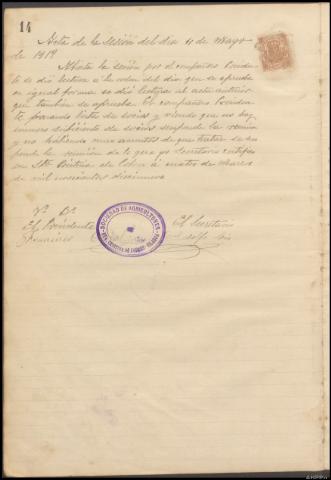 14
Acta de la Sesión del dia 4 de Mayo
de 1919
Abierta la sesión por el compañero Preside
te se dio lectura a la orden del dia que se aprueba
en igual forma se dio lectura al acta anterior
que tambien se aprueba. El compañero Presiden
te, pasando lista de socios y viendo que no hay
numero suficiente de socios suspende la sesion
y no habiendo mas asuntos de que tratar se sus
pende la reunión de lo que yo Secretario certifico
en Soto
de mil novecientos diecinueve
Vº Bº
El Presidente
El Secretario
Francisco
SOCIEDAD DE AGRICULTORES